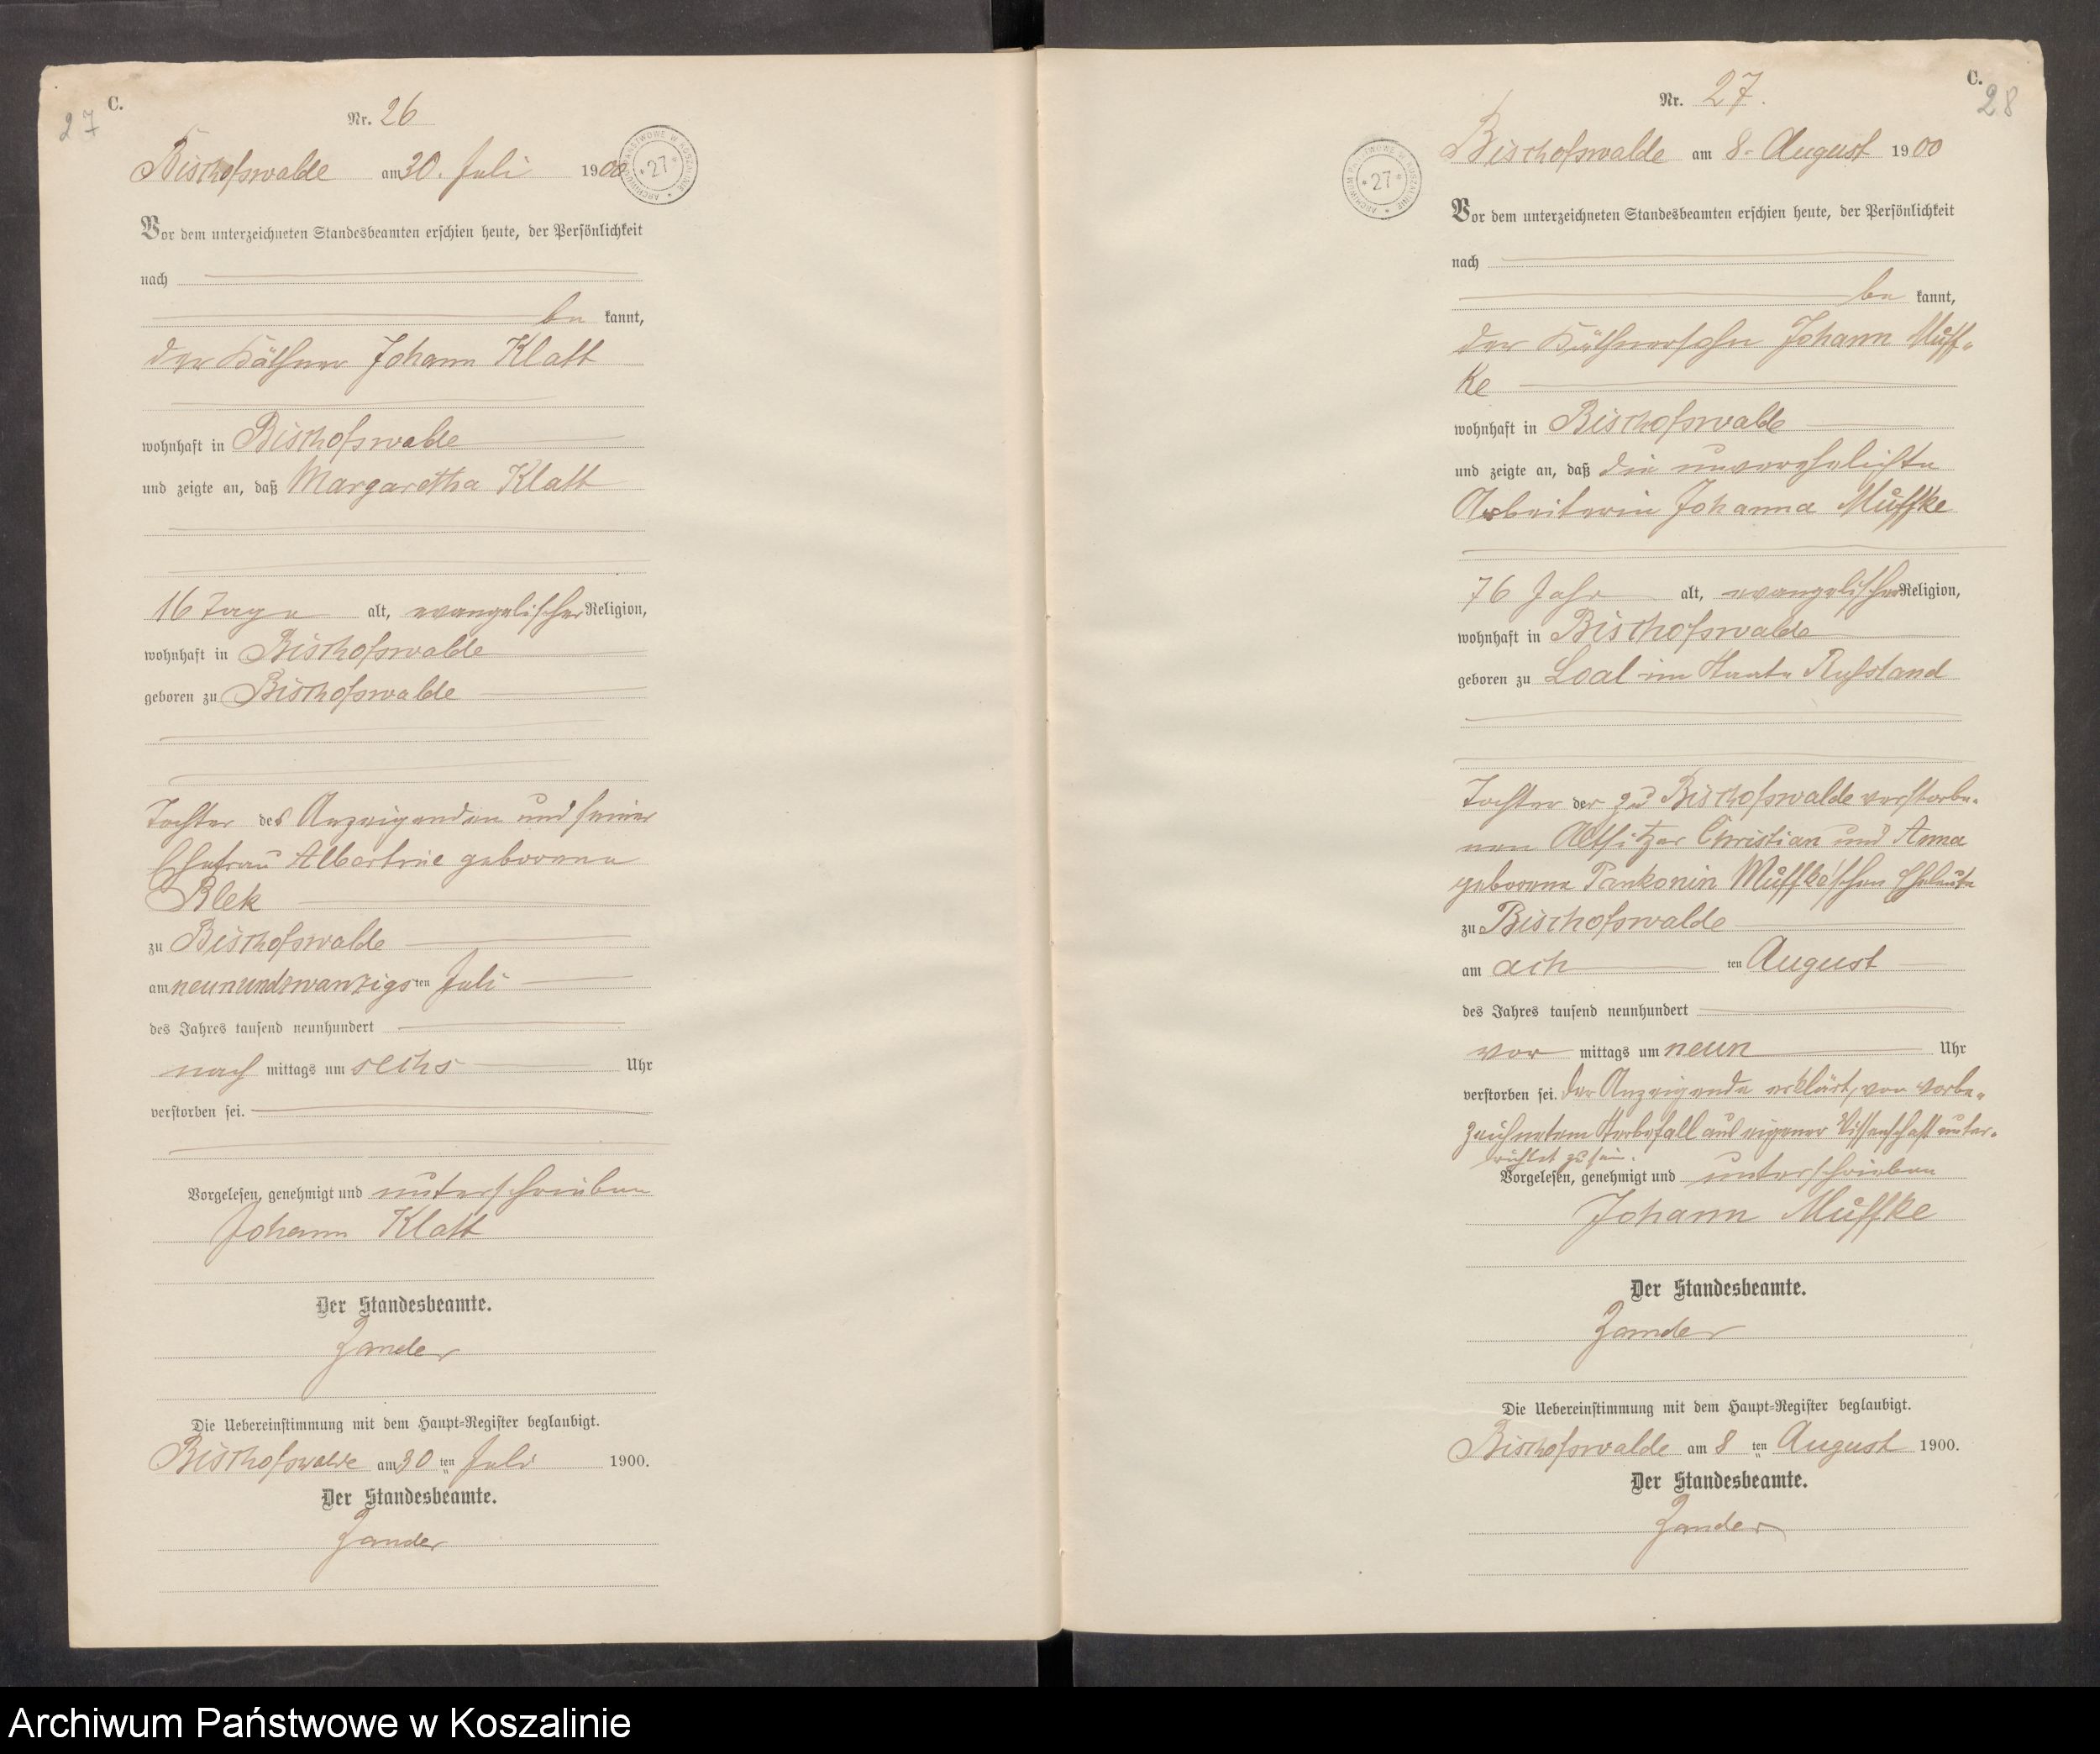 27
C.
Nr. 26
Bischofswalde am 30. Juli 1900
ARCHIWUM PAŃSTWOWE W KOSZALINIE * 27 *
Vor dem unterzeichneten Standesbeamten erschien heute, der Persönlichkeit
nach
be kannt,
der Käthner Johann Klatt
wohnhaft in Bischofswalde
und zeigte an, daß Margaretha Klatt
16 Tage alt, evangelischer Religion,
wohnhaft in Bischofswalde
geboren zu Bischofswalde
Tochter des Anzeigenden und seiner
Ehefrau Albertine geborene
Blek
zu Bischofswalde
am neunundzwanzigsten Juli
des Jahres tausend neunhundert
nach mittags um sechs Uhr
verstorben sei.
Vorgelesen, genehmigt und unterschrieben
Johann Klatt
Der Standesbeamte.
Zander
Die Uebereinstimmung mit dem Haupt-Register beglaubigt.
Bischofswalde am 30 ten Juli 1900.
Der Standesbeamte.
Zander
C.
28
Nr. 27.
Bischofswalde am 8. August 1900
ARCHIWUM PAŃSTWOWE W KOSZALINIE * 27 *
Vor dem unterzeichneten Standesbeamten erschien heute, der Persönlichkeit
nach
be kannt,
der Käthnersohn Johann Muff-
ke
wohnhaft in Bischofswalde
und zeigte an, daß die unverehelichte
Arbeiterin Johanna Muffke
76 Jahr alt, evangelischer Religion,
wohnhaft in Bischofswalde
geboren zu Loal im Staate Rußland
Tochter der zu Bischofswalde verstorbe-
nen Altsitzer Christian und Anna
geborene Muffke'schen Eheleute
zu Bischofswalde
am ach ten August
des Jahres tausend neunhundert
vor mittags um neun Uhr
verstorben sei. Der Anzeigende erklärt, von vorbe-
zeichnetem Sterbefall aus eigener Wissenschaft unter-
richtet zu sein.
Vorgelesen, genehmigt und unterschrieben
Johann Muffke
Der Standesbeamte.
Zander
Die Uebereinstimmung mit dem Haupt-Register beglaubigt.
Bischofswalde am 8 ten August 1900.
Der Standesbeamte.
Zander
Archiwum Państwowe w Koszalinie